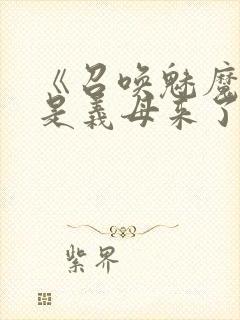 《召唤魅魔
是义母来了
紫界